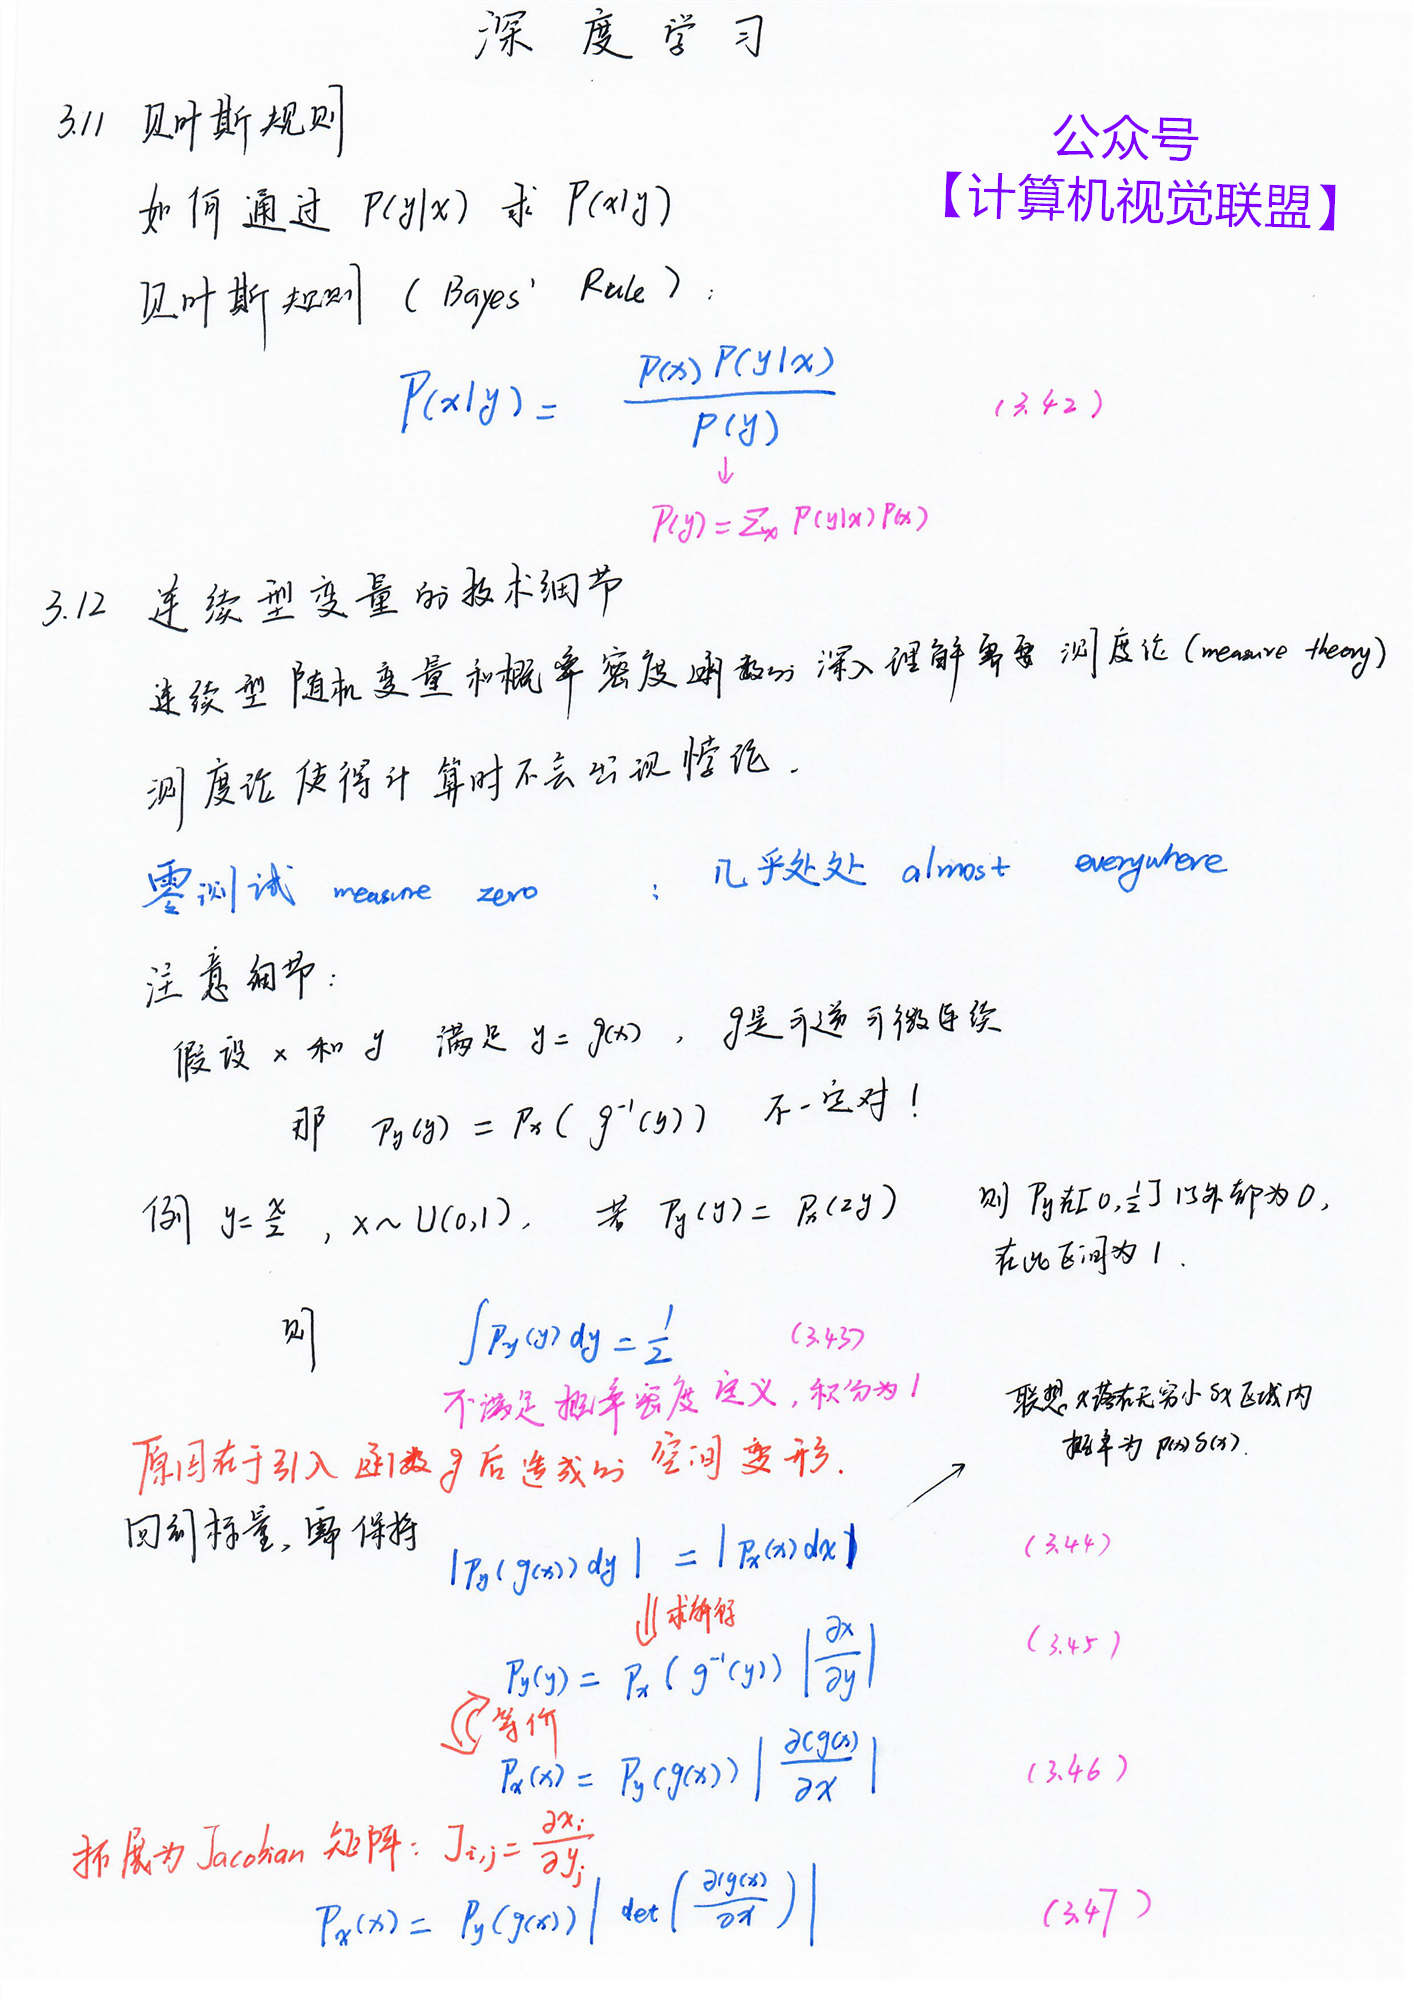 深度学习
3.11 贝叶斯规则
公众号
【计算机视觉联盟】
如何通过 P(y|x) 求 P(x|y)
贝叶斯规则 (Bayes' Rule):
P(x|y) = P(x)P(y|x) / P(y) (3.42)
↓
P(y) = Σₓ P(y|x)P(x)
3.12 连续型变量的技术细节
连续型随机变量和概率密度函数的深入理解需要测度论 (measure theory)
测度论使得计算时不会出现悖论.
零测试 measure zero ; 几乎处处 almost everywhere
注意细节:
假设 x 和 y 满足 y = g(x), g是可逆可微连续
那 Py(y) = Px(g⁻¹(y)) 不一定对!
例 y = x/2, x~U(0,1), 若 Py(y) = Px(2y) 则 Py在[0,1/2]以外都为0,
在此区间为1.
则 ∫Py(y)dy = 1/2 (3.43)
不满足概率密度定义,积分为1
联想 x落在无穷小δx区域内
概率为 p(x)δ(x).
原因在于引入函数g后造成的空间变形.
回到标量,需保持
|Py(g(x))dy| = |Px(x)dx| (3.44)
⇓ 求解得
Py(y) = Px(g⁻¹(y)) |∂x/∂y| (3.45)
等价
Px(x) = Py(g(x)) |∂(g(x)/∂x| (3.46)
拓展为Jacobian矩阵: Ji,j = ∂xi/∂yj
Px(x) = Py(g(x)) |det(∂(g(x)/∂x)| (3.47)